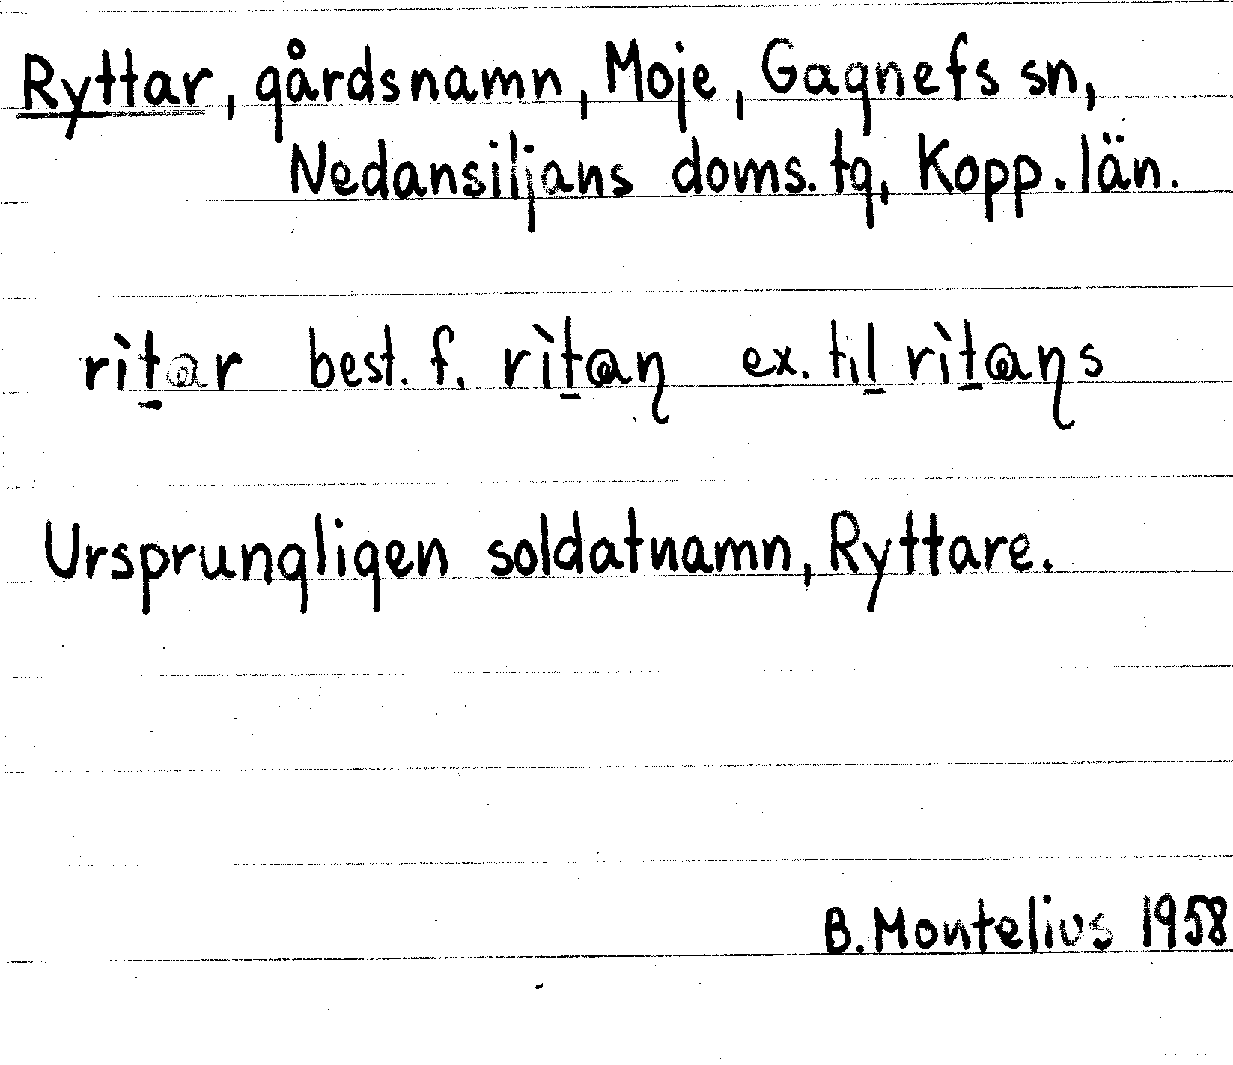 Ryttar, gårdsnamn, Moje, Gagnefs sn,
Nedansiljans doms. tg, Kopp. län.
rìt̠ar best. f. rìt̠aɳ ex. til̠ rìt̠aɳs
Ursprungligen soldatnamn, Ryttare.
B. Montelius 1958